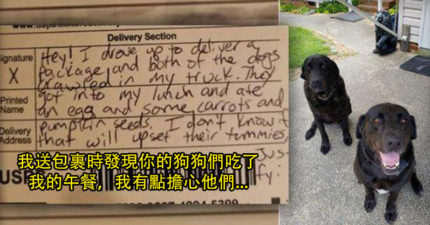 www.usps.co
Delivery Section
Signature
X
Printed
Name
Delivery
Address
Hey! I drove up to deliver a
package and both of the dogs
crawled in my truck. They
got into my lunch and ate
an egg and some carrots and
pumpkin seeds. I don't know if
that will upset their tummies,
Jus
fy.
我送包裹時發現你的狗狗們吃了
我的午餐，我有點擔心他們...
USPS